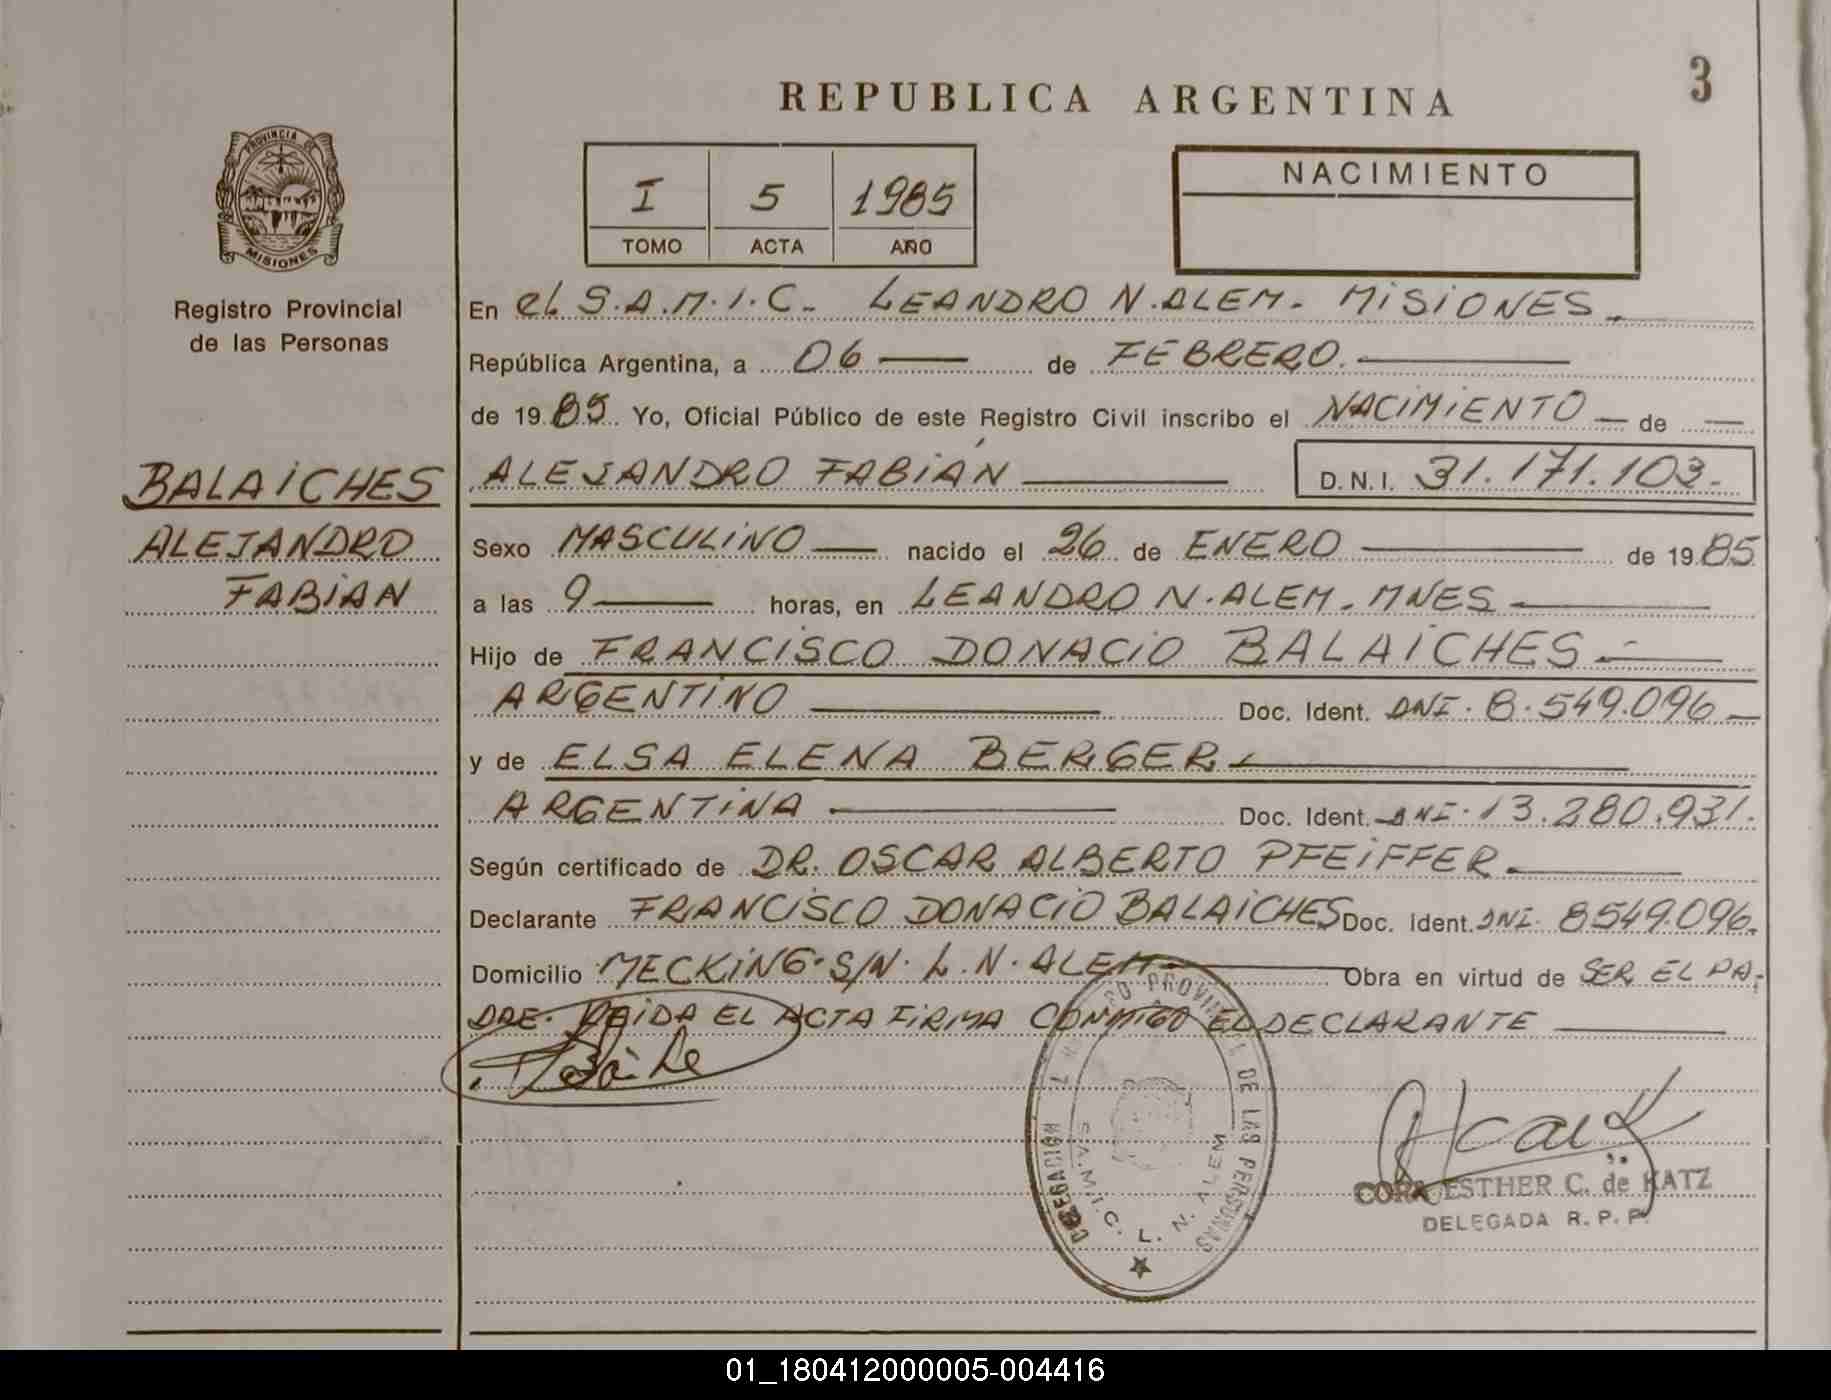 3
REPUBLICA ARGENTINA
PROVINCIA DE
MISIONES
Registro Provincial
de las Personas
I 5 1985
TOMO ACTA AÑO
NACIMIENTO
En el S.A.M.I.C. - LEANDRO N. ALEM - MISIONES
República Argentina, a 06 de FEBRERO.
de 19 85 Yo, Oficial Público de este Registro Civil inscribo el NACIMIENTO de
BALAICHES
ALEJANDRO
FABIAN
ALEJANDRO FABIÁN D.N.I. 31.171.103.-
Sexo MASCULINO nacido el 26 de ENERO de 19 85
a las 9 horas, en LEANDRO N. ALEM. MNES
Hijo de FRANCISCO DONACIO BALAICHES
ARGENTINO Doc. Ident. DNI. 8.549.096
y de ELSA ELENA BERGER
ARGENTINA Doc. Ident. DNI. 13.280.931.
Según certificado de DR. OSCAR ALBERTO PFEIFFER
Declarante FRANCISCO DONACIO BALAICHES Doc. Ident. DNI. 8549.096.
Domicilio MECKING. S/N. L. N. ALEM Obra en virtud de SER EL PA-
DRE. LEIDA EL ACTA FIRMA CONMIGO EL DECLARANTE
DELEGACION DE LAS PERSONAS
S.A.M.I.C. L. N. ALEM
CORA ESTHER C. de KATZ
DELEGADA R. P. P.
01_180412000005-004416